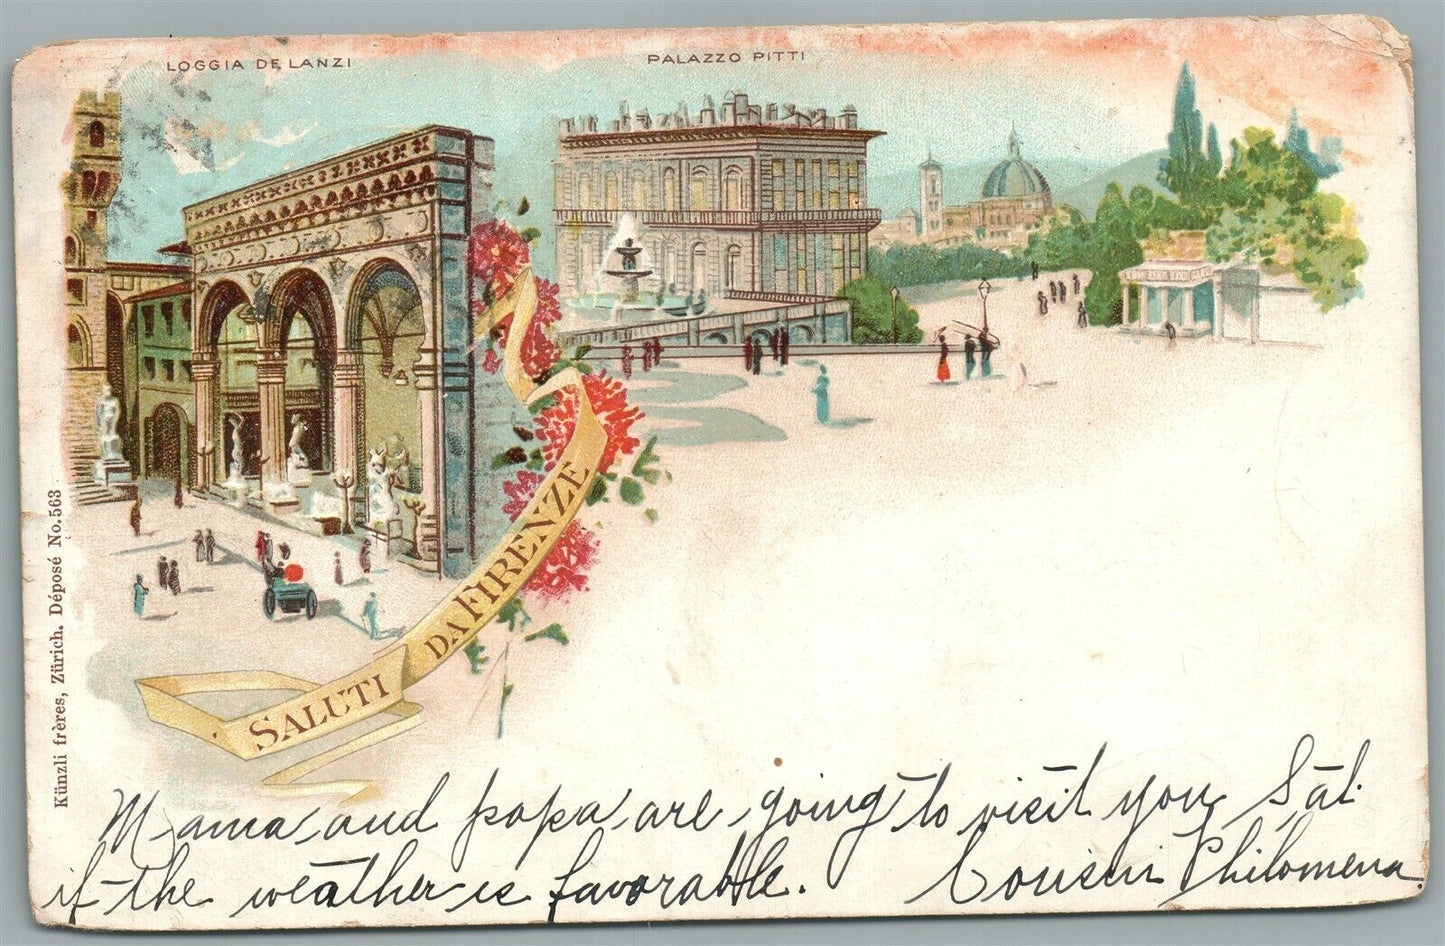 LOGGIA DE LANZI
PALAZZO PITTI
SALUTI DA FIRENZE
Künzli frères, Zürich. Déposé No. 563
Mama and papa are going to visit you Sat.
if the weather is favorable. Cousin Philomena.